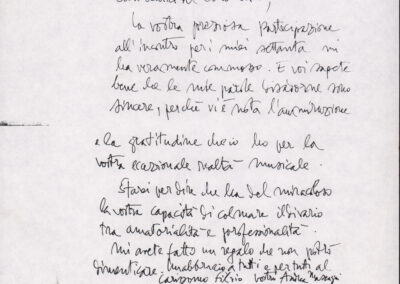 La vostra preziosa partecipazione
all'incontro per i miei settanta mi
ha veramente commosso. E voi sapete
bene che le mie parole sono
sincere, perché vi è nota l'ammirazione
e la gratitudine che io ho per la
vostra eccezionale realtà musicale.
Starei per dire che ha del miracoloso
la vostra capacità di colmare il divario
tra amatorialità e professionalità.
Mi avete fatto un regalo che non potrò
dimenticare. Un abbraccio a tutti e per tutti al
carissimo Silvio vostro Andrea